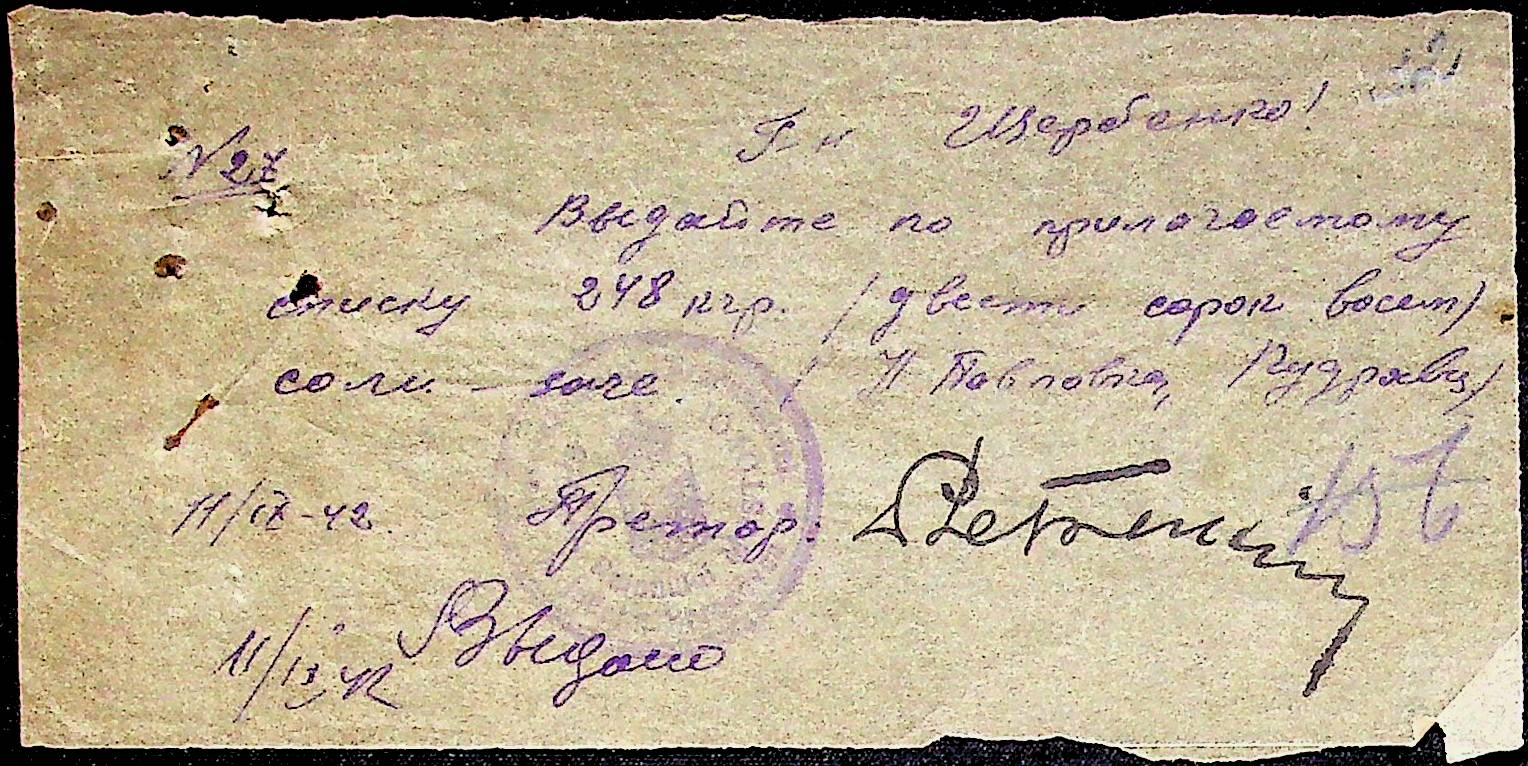 N 27
Г-н Щербенко!
Выдайте по прилагаемому
списку 248 кгр. /двести сорок восем/
соли -
/Н Павловка, Кудрявец/
11/IX-42. Претор:
157
11/IX 42 Выдано